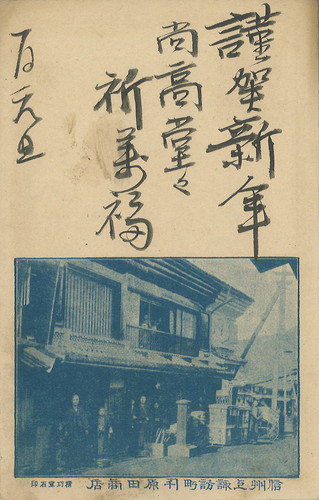 謹賀新年
尚高堂々
祈萬福
元旦
信州上諏訪町 原田商店
石印